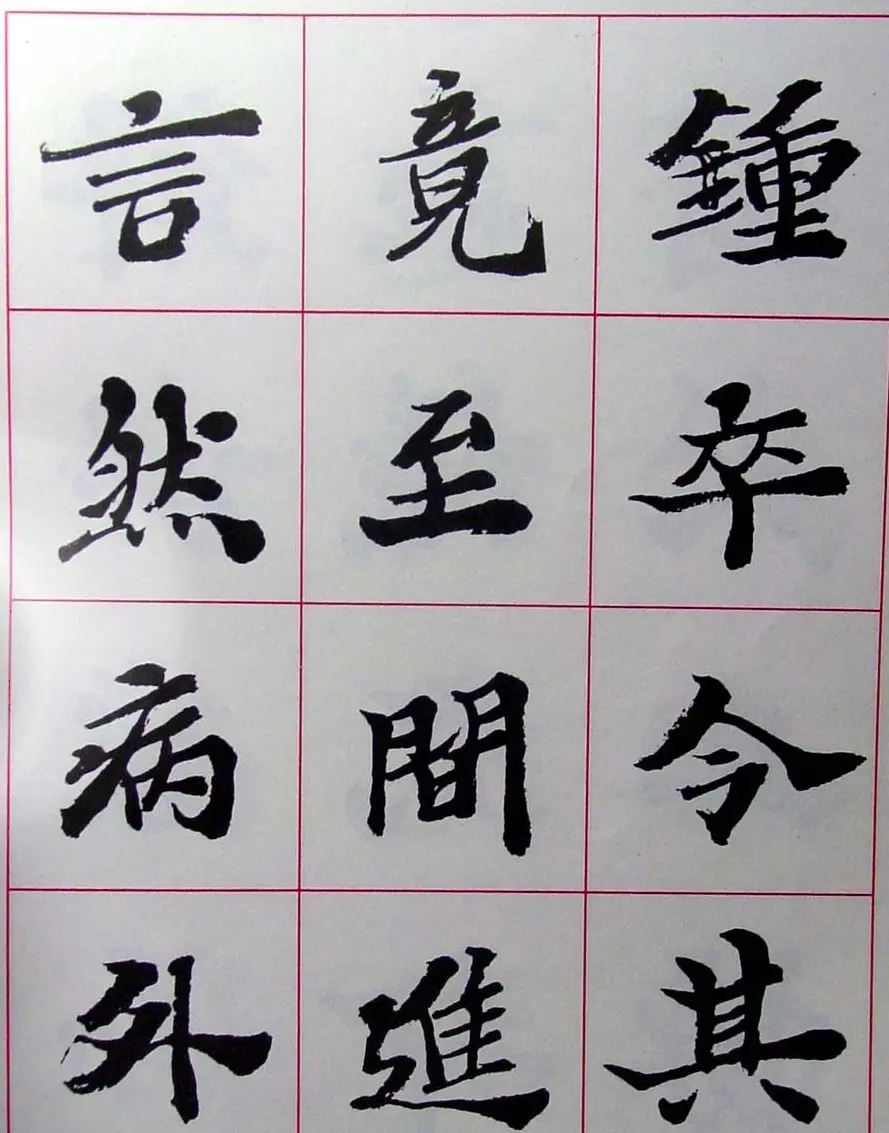 鍾卒令其
竟至間進
言然病外